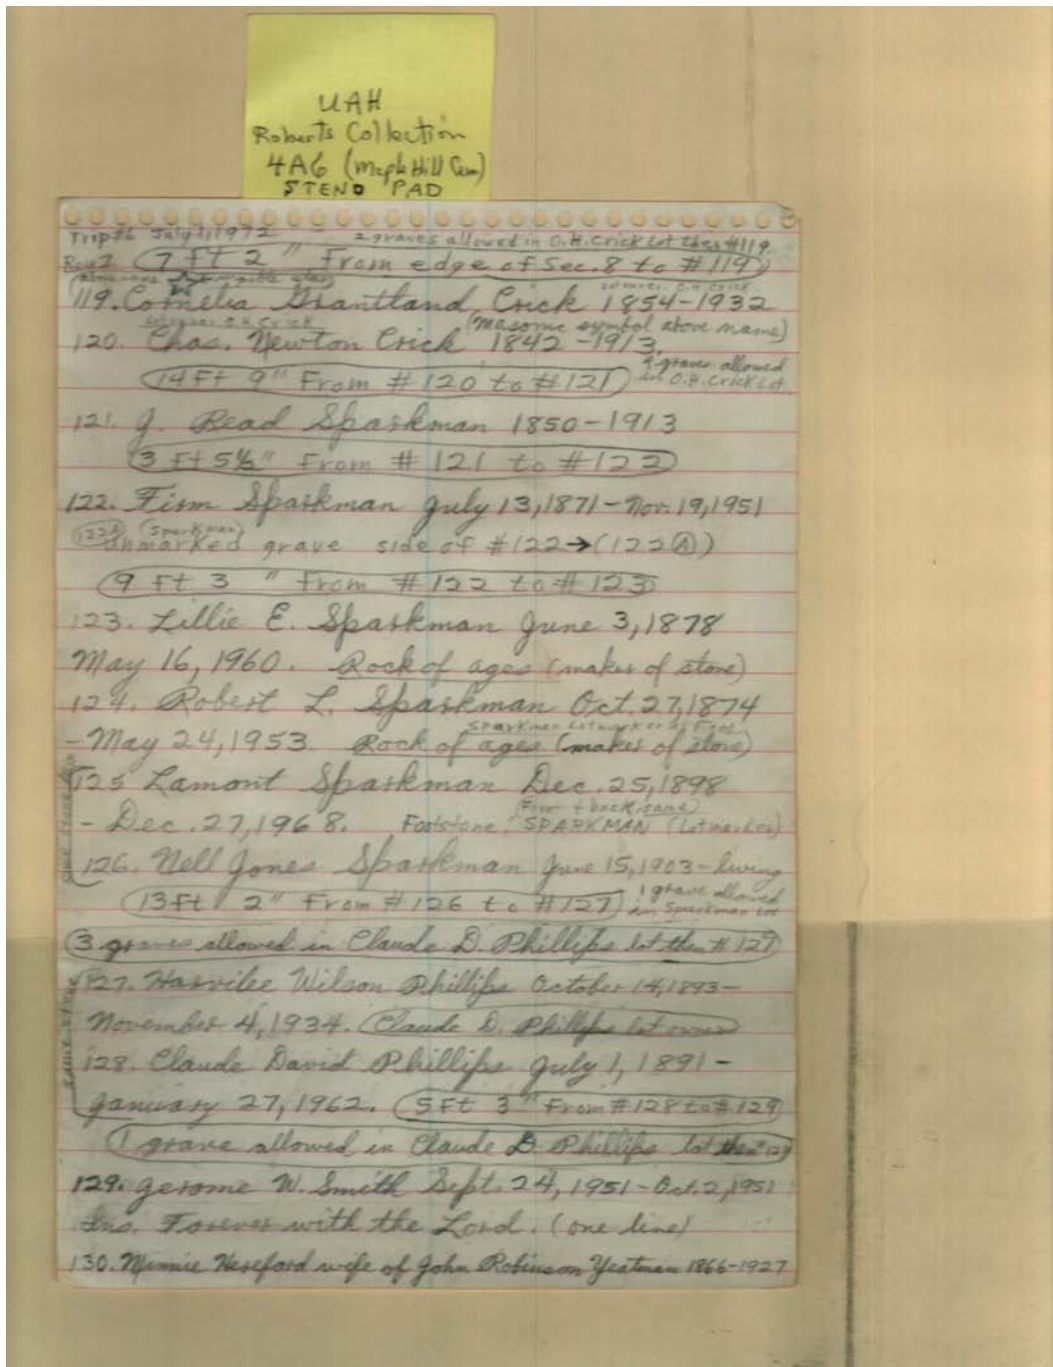 UAH
Roberts Collection
4A6 (Maple Hill Cem)
STENO PAD
Trip #6 July 1, 1972 2 graves allowed in O.H. Crick Lot then #119
Row 2 7 ft 2 " From edge of Sec. 8 to #119
lot owner O.H. Crick
119. Cornelia Grantland Crick 1854-1932
lot owner O.H. Crick (Masonic symbol above name)
120. Chas. Newton Crick 1842-1913
graves allowed
14 Ft 9" From #120 to #121 in O.H. Crick Lot.
121. J. Read Sparkman 1850-1913
3 ft 5½" From #121 to #122
122. Firm Sparkman July 13, 1871-Nov. 19, 1951
122A (Sparkman)
Unmarked grave side of #122→(122 A)
9 Ft 3 " From #122 to #123
123. Lillie E. Sparkman June 3, 1878
May 16, 1960. Rock of ages (maker of stone)
124. Robert L. Sparkman Oct. 27, 1874
Sparkman Lot marker at Foot
-May 24, 1953. Rock of ages (maker of stone)
125 Lamont Sparkman Dec. 25, 1898
(Front + back same)
- Dec. 27, 1968. Footstone, SPARKMAN (Lot marker)
126. Nell Jones Sparkman June 15, 1903-living
1 grave allowed
13 Ft 2" From #126 to #127 in Sparkman Lot
3 graves allowed in Claude D. Phillips lot then #127
127. Harvilee Wilson Phillips October 14, 1893-
November 4, 1934. Claude D. Phillips lot owner
same stone
128. Claude David Phillips July 1, 1891-
January 27, 1962. 5 Ft 3" From #128 to #129
1 grave allowed in Claude D Phillips lot then #129
129. Jerome W. Smith Sept. 24, 1951-Oct. 2, 1951
Ins. Forever with the Lord. (one line)
130. Minnie Hereford wife of John Robinson Yeatman 1866-1927